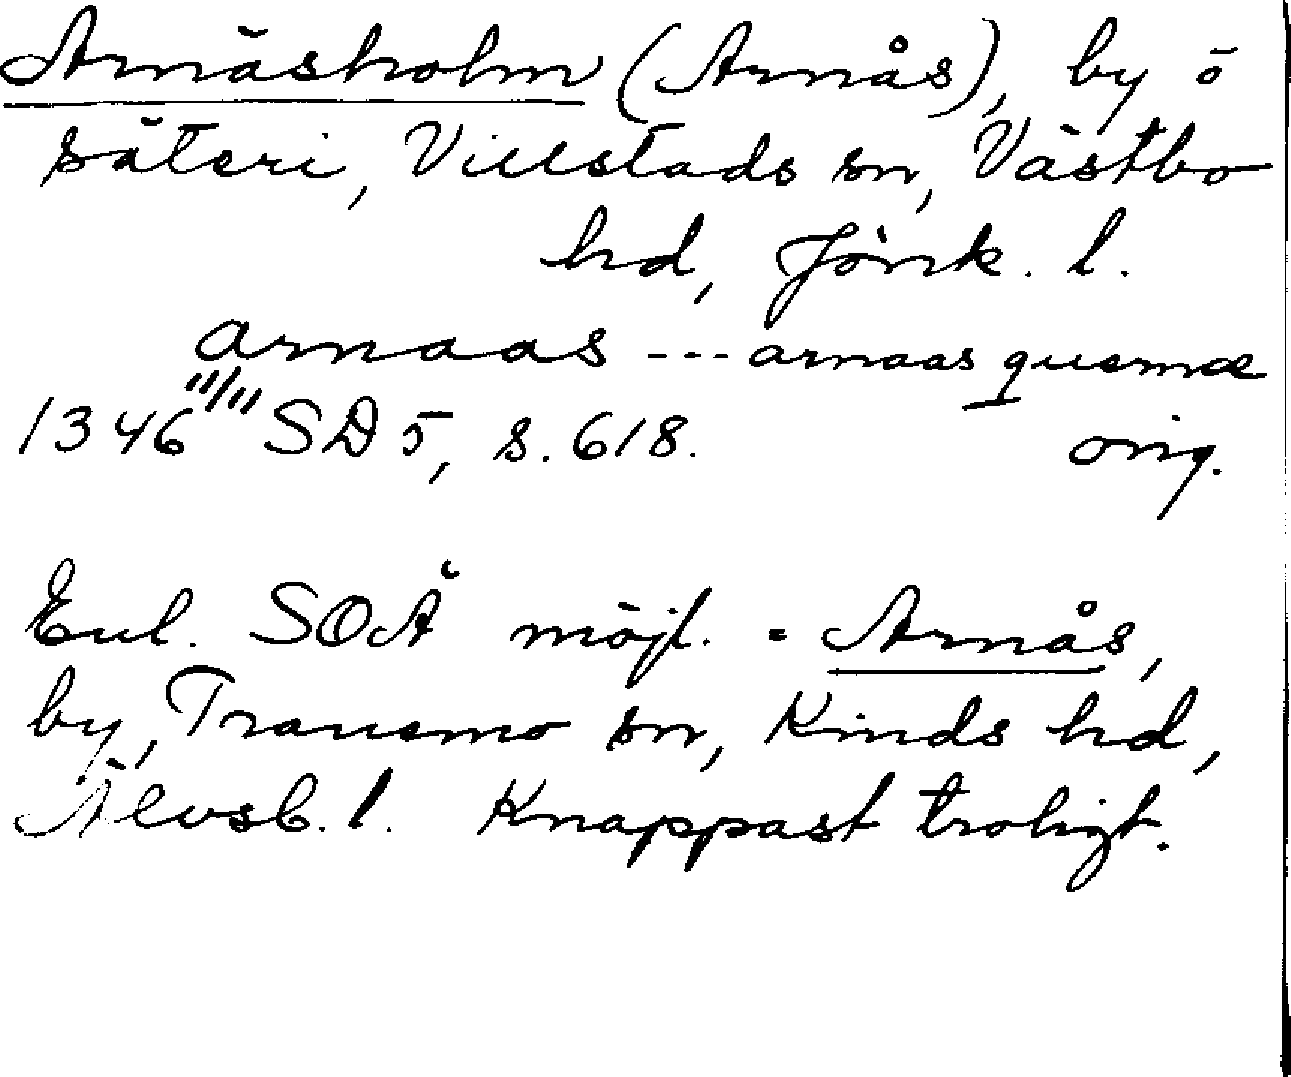 Arnäsholm (Arnås), by o
säteri, Villstads sn, Västbo
hd, Jönk. l.
arnaas --- arnaas quernæ
1346 11/11 SD 5, s. 618. orig.
Enl. SOÄ möjl. = Arnås,
by, Tranemo sn, Kinds hd,
Älvsb. l. Knappast troligt.